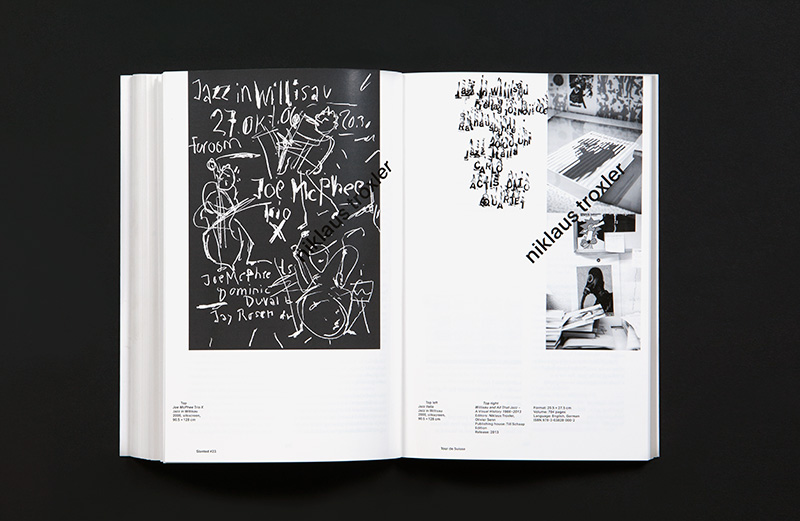 Jazz in Willisau
27.Okt.06 20.30
Foroom
Joe McPhee
Trio
X
Joe McPhee
Dominic
Duval
Jay Rosen dr
niklaus troxler
Top
Joe McPhee Trio X
Jazz in Willisau
2006, silkscreen,
90.5 × 128 cm
Slanted #23
Jazz in Willisau
CARLO
ACTIS DATO
QUARTET
niklaus troxler
Top left
Jazz Italia
Jazz in Willisau
2000, silkscreen,
90.5 × 128 cm
Top right
Willisau and All That Jazz –
A Visual History 1966–2013
Editors: Niklaus Troxler,
Olivier Senn
Publishing house: Till Schaap
Edition
Release: 2013
Format: 20.5 × 27.5 cm
Volume: 704 pages
Language: English, German
Tour de Suisse